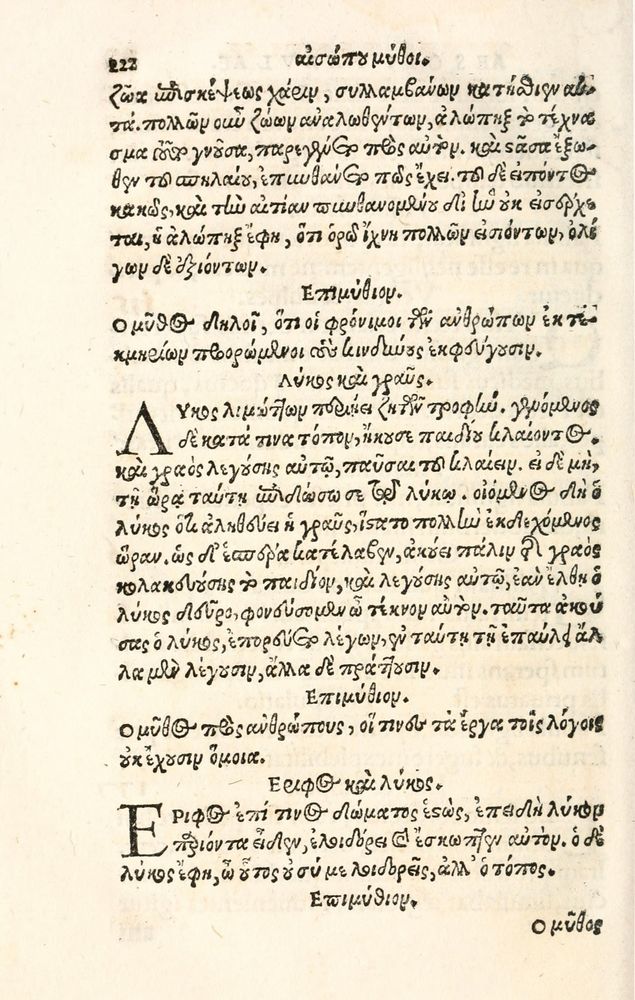 222 αἰσώπου μῦθοι.
ζῶα ἐπισκέψεως χάριν, συλλαμβάνων κατήσθιεν αὐ-
τά. πολλῶν οὖν ζώων ἀναλωθέντων, ἀλώπηξ τὸ τέχνα-
σμα τοῦτο γνοῦσα, παρεγένετο πρὸς αὐτὸν. καὶ στᾶσα ἔξω-
θεν τοῦ σπηλαίου, ἐπυνθάνετο πῶς ἔχει. τοῦ δὲ εἰπόντος
κακῶς, καὶ τὴν αἰτίαν πυνθανομένου δι' ἣν οὐκ εἰσέρχε-
ται, ἡ ἀλώπηξ ἔφη, ὅτι ὁρῶ ἴχνη πολλῶν εἰσιόντων, ὀλί
γων δὲ ἐξιόντων.
Επιμύθιον.
Ο μῦθος δηλοῖ, ὅτι οἱ φρόνιμοι τῶν ἀνθρώπων ἐκ τε-
κμηρίων προορώμενοι τοὺς κινδύνους ἐκφεύγουσιν.
Λύκος καὶ γραῦς.
ΛΥκος λιμώττων περιῄει ζητῶν τροφήν. γενόμενος
δὲ κατά τινα τόπον, ἤκουσε παιδίου κλαίοντος.
καὶ γραὸς λεγούσης αὐτῷ, παῦσαι τοῦ κλαίειν. εἰ δὲ μὴ,
τῇ ὥρᾳ ταύτῃ ἐπιδώσω σε τῷ λύκῳ. οἰόμενος δὴ ὁ
λύκος ὅτι ἀληθεύει ἡ γραῦς, ἵστατο πολλὴν ἐκδεχόμενος
ὥραν. ὡς δ' ἑσπέρα κατέλαβεν, ἀκούει πάλιν τῆς γραὸς
κολακευούσης τὸ παιδίον, καὶ λεγούσης αὐτῷ, ἐὰν ἔλθῃ ὁ
λύκος δεῦρο, φονεύσομεν ὦ τέκνον αὐτὸν. ταῦτα ἀκού
σας ὁ λύκος, ἐπορεύετο λέγων, ἐν ταύτῃ τῇ ἐπαύλει ἄλ
λα μὲν λέγουσιν, ἄλλα δὲ πράττουσιν.
Επιμύθιον.
Ο μῦθος πρὸς ἀνθρώπους, οἵ τινες τὰ ἔργα τοῖς λόγοις
οὐκ ἔχουσιν ὅμοια.
Εριφος καὶ λύκος.
ΕΡΙΦος ἐπί τινος δώματος ἑστὼς, ἐπειδὴ λύκον
παριόντα εἶδεν, ἐλοιδόρει καὶ ἔσκωπτεν αὐτὸν. ὁ δὲ
λύκος ἔφη, ὦ οὗτος οὐ σύ με λοιδορεῖς, ἀλλ' ὁ τόπος.
Επιμύθιον.
Ο μῦθος